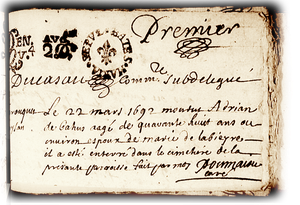 Premier
Ducasau Comm.re Subdelegue
Le 22 mars 1692 mourut Adrian
de bahus aagé de quarante huit ans ou
environ espoux de marie de labieyre
il a esté enterré dans le cimetiere de la
presante paroisse fait par moy
curé